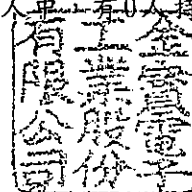 金寶電子
工業股份
有限公司